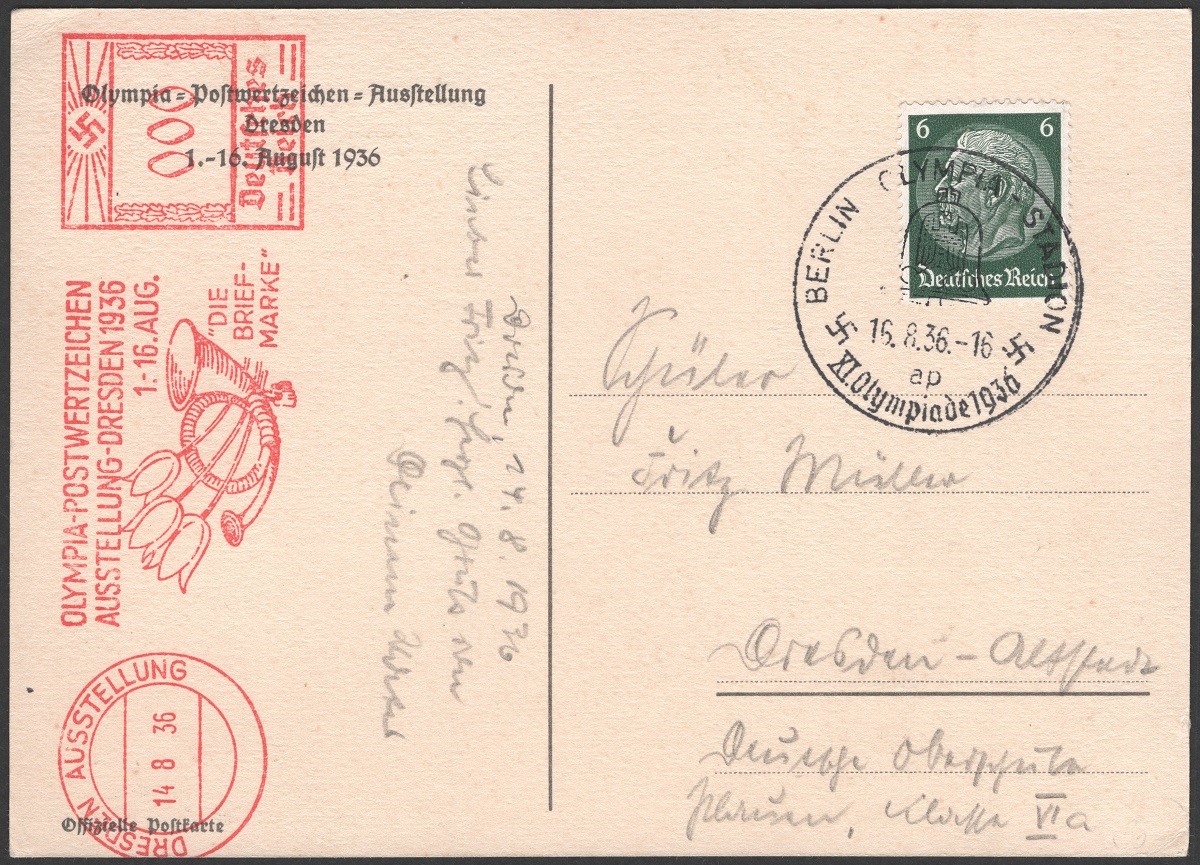 Olympia-Postwertzeichen-Ausstellung
Dresden
1.-16. August 1936
000
Deutsches
Reich
OLYMPIA-POSTWERTZEICHEN
AUSSTELLUNG-DRESDEN 1936
1.-16. AUG.
"DIE
BRIEF-
MARKE"
DRESDEN AUSSTELLUNG
14 8 36
Offizielle Postkarte
Dresden, 14. 8. 1936
Lieber Fritz! Herzl. Grüße von
Deinem
6 6
Deutsches Reich
BERLIN OLYMPIA-STADION
16. 8. 36.-16
ap
XI. Olympiade 1936
Schüler
Fritz Müller
Dresden-Altstadt
Deutsche Oberschule
Plauen, Klasse VIa